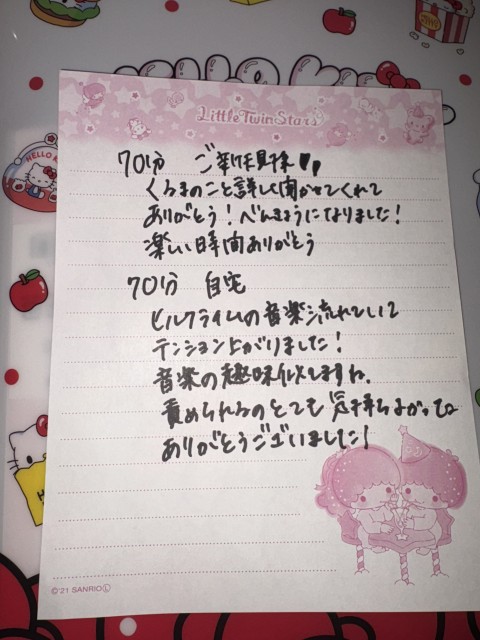 Little Twin Stars
70分 ご新規様
くるまのこと詳しく聞かせてくれて
ありがとう！べんきょうになりました！
楽しい時間ありがとう
70分 自宅
ヒルクライムの音楽流れていて
テンション上がりました！
音楽の趣味似てますね。
責められるのとても気持ちよかってな
ありがとうございました！
HELLO K
©'21 SANRIO Ⓛ